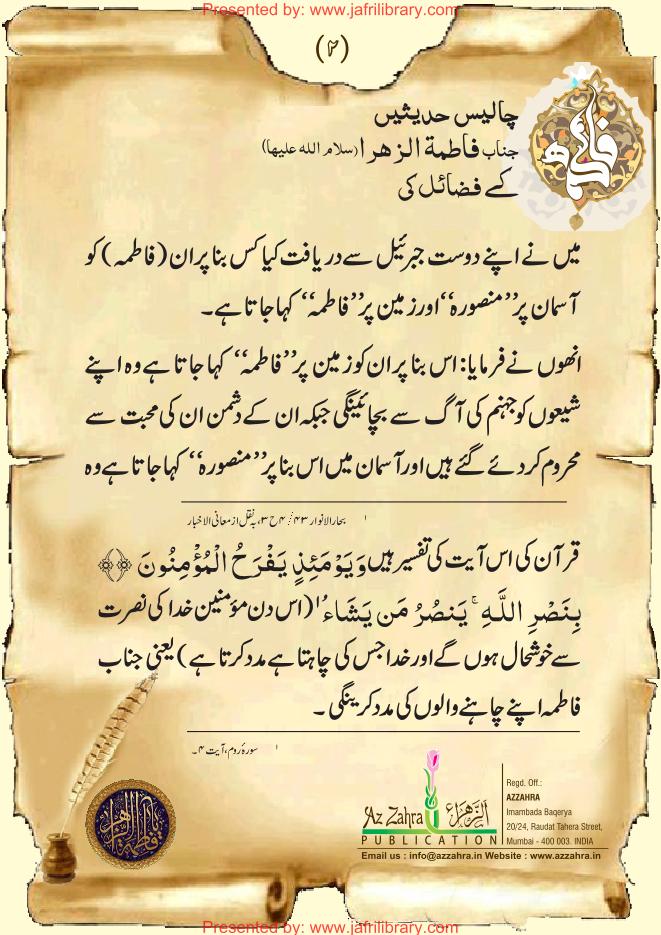 Presented by: www.jafrilibrary.com
(۲)
چالیس حدیثیں
جناب فاطمة الزهرا (سلام الله علیها)
کے فضائل کی
میں نے اپنے دوست جبرئیل سے دریافت کیا کس بنا پر ان (فاطمہ) کو
آسمان پر ’’منصورہ‘‘ اور زمین پر ’’فاطمہ‘‘ کہا جاتا ہے۔
انھوں نے فرمایا: اس بنا پر ان کو زمین پر ’’فاطمہ‘‘ کہا جاتا ہے وہ اپنے
شیعوں کو جہنم کی آگ سے بچائینگی جبکہ ان کے دشمن ان کی محبت سے
محروم کر دئے گئے ہیں اور آسمان میں اس بنا پر ’’منصورہ‘‘ کہا جاتا ہے وہ
۱ بحار الانوار ۴۳/ ۴ ح ۳، بہ نقل از معانی الاخبار
قرآن کی اس آیت کی تفسیر ہیں وَيَوْمَئِذٍ يَفْرَحُ الْمُؤْمِنُونَ ﴿۴﴾
بِنَصْرِ اللَّهِ ۚ يَنصُرُ مَن يَشَاءُ ۱ (اس دن مؤمنین خدا کی نصرت
سے خوشحال ہوں گے اور خدا جس کی چاہتا ہے مدد کرتا ہے) یعنی جناب
فاطمہ اپنے چاہنے والوں کی مدد کرینگی۔
۱ سورۂ روم، آیت ۴۔
Az Zahra الزهراء
PUBLICATION
Regd. Off.:
AZZAHRA
Imambada Baqerya
20/24, Raudat Tahera Street,
Mumbai - 400 003. INDIA
Email us : info@azzahra.in Website : www.azzahra.in
Presented by: www.jafrilibrary.com